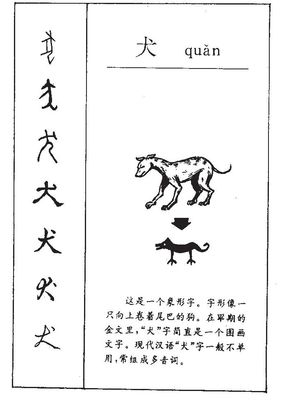 犬 quǎn
这是一个象形字。字形像一
只向上卷着尾巴的狗。在早期的
金文里,“犬”字简直是一个图画
文字。现代汉语“犬”字一般不单
用,常组成多音词。
犬
犬
犬